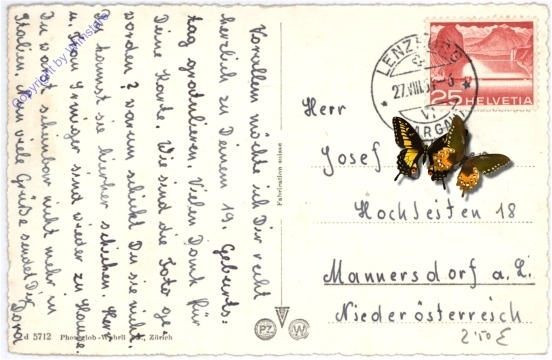 Vorallem möchte ich Dir recht
herzlich zu Deinem 19. Geburts-
tag gratulieren. Vielen Dank für
Deine Karte. Wie sind die Foto ge-
worden? warum schickt Du sie nicht.
Du kannst sie hierher schicken. Herr
u. Frau Irniger sind wieder zu Hause.
Du warst scheinbar nicht mehr in
Italien. Nun viele Grüße sendet Dir
Dora
Copyright by
Fabrication suisse
d 5712 Photoglob-Wehrli Zürich
PZ W
LENZBURG
27.VIII.
25 HELVETIA
Herr
Josef
Hochleiten 18
Mannersdorf a. L.
Niederösterreich
2'50 €